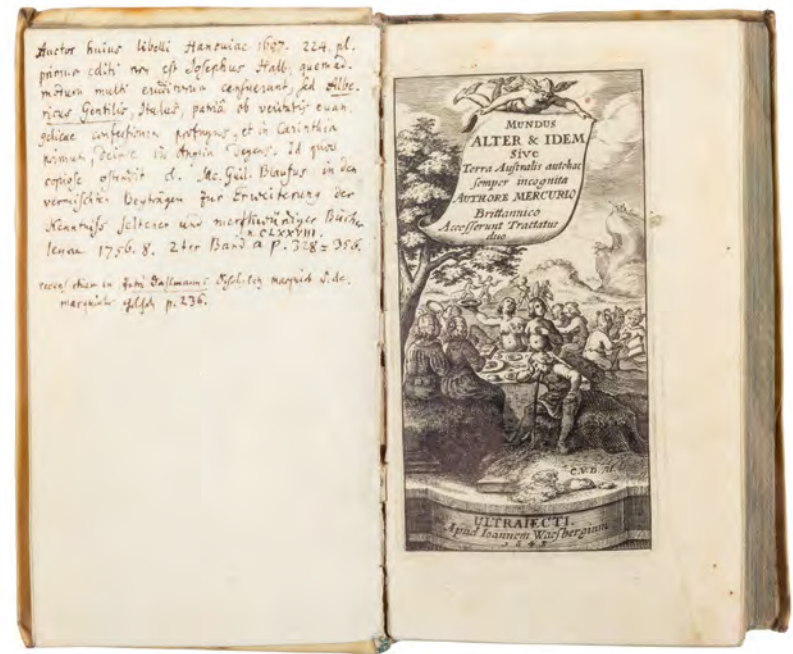 Auctor huius libelli Hanoviae 1607. 224. pl.
primum editi non est Josephus Hall, quemad-
modum multi eruditorum censuerunt, sed Albe-
ricus Gentilis, Italus, patria ob veritatis euan-
gelicae confessionem profugus, et in Carinthia
primum, deinde in Anglia degens. Id quod
copiose ostendit cl. Jac. Guil. Blaufus in den
vermischten Beyträgen zur Erweiterung der
Kenntniß seltener und merkwürdiger Bücher
n. CLXXVIII.
Jenae 1756. 8. 2ter Band a p. 328 = 356.
recens etiam in
p. 236.
MUNDUS
ALTER & IDEM
Sive
Terra Australis antehac
semper incognita
AUTHORE MERCURIO
Brittannico
Accesserunt Tractatus
duo
C.V.D. f.
ULTRAIECTI.
Apud Ioannem Waesbergium